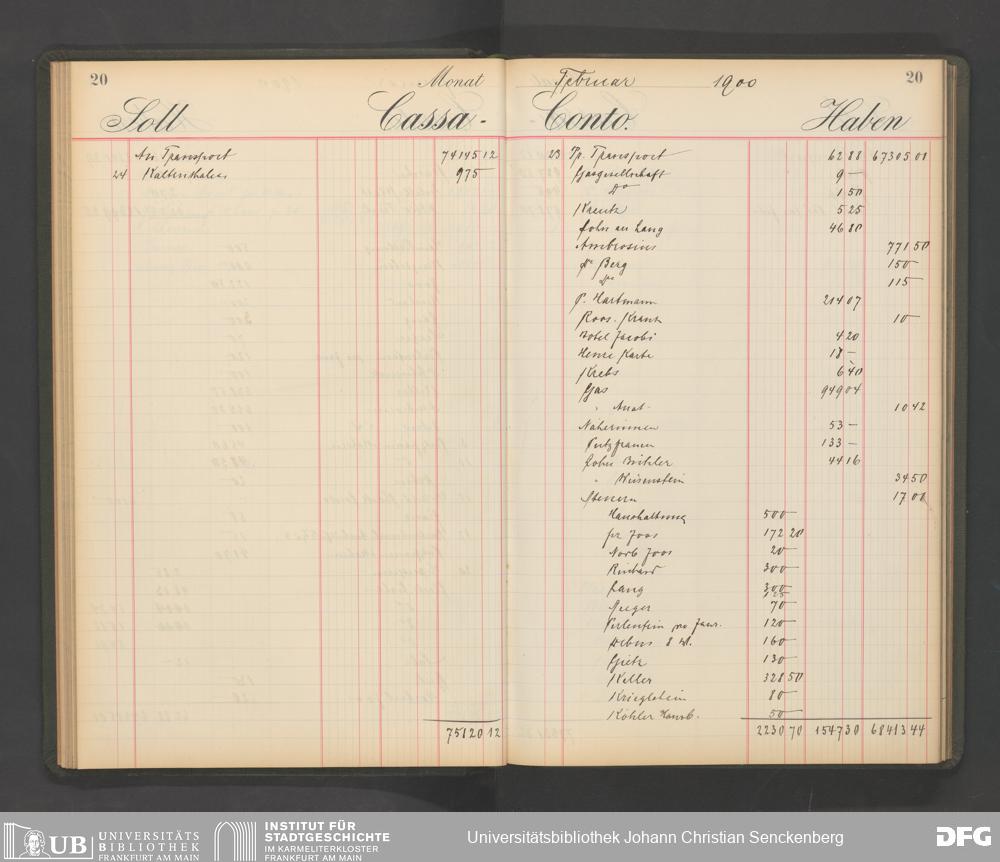 20 Monat
Soll Cassa-
An Transport 74145 12
24 Kaltenthaler 975 —
75120 12
Februar 1900 20
Conto. Haben
23 Pr. Transport 62 88 67305 01
Gasgesellschaft 9 —
do 1 50
Kreutz 5 25
Lohn an Lang 46 80
Ambrosius 771 50
do Berg 150 —
do 115 —
P. Hartmann 214 07
Roos. Krantz 10 —
Hotel Jacobi 4 20
Henre Karte 18 —
Krebs 6 40
Gas 949 04
" Anat. 10 42
Näherinnen 53 —
Putzfrauen 133 —
Lohn Bühler 44 16
" 34 50
Steuern 17 01
Haushaltung 500 —
pr Joos 172 20
Norb Joos 20 —
Reichard 300 —
Lang 300 —
Seeger 70 —
pro Janr. 120 —
8 W. 160 —
Goetz 130 —
Keller 328 50
Krieglstein 80 —
Köhler Hausb. 50 —
2230 70 1547 30 68413 44
UB UNIVERSITÄTS
BIBLIOTHEK
FRANKFURT AM MAIN
INSTITUT FÜR
STADTGESCHICHTE
IM KARMELITERKLOSTER
FRANKFURT AM MAIN
Universitätsbibliothek Johann Christian Senckenberg
DFG